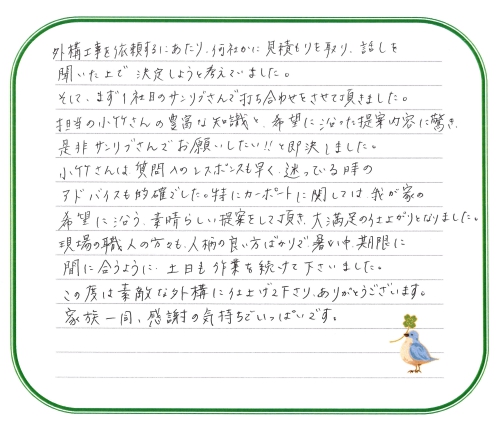 外構工事を依頼するにあたり、何社かに見積もりを取り、話しを
聞いた上で決定しようと考えていました。
そして、まず1社目のサンリブさんで打ち合わせをさせて頂きました。
担当の小竹さんの豊富な知識と、希望に沿った提案内容に驚き、
是非サンリブさんでお願いしたい!!と即決しました。
小竹さんは質問へのレスポンスも早く、迷っている時の
アドバイスも的確でした。特にカーポートに関しては、我が家の
希望に沿う、素晴らしい提案をして頂き、大満足の仕上がりとなりました。
現場の職人の方々も、人柄の良い方ばかりで暑い中、期限に
間に合うように、土日も作業を続けて下さいました。
この度は素敵な外構に仕上げて下さり、ありがとうございます。
家族一同、感謝の気持ちでいっぱいです。